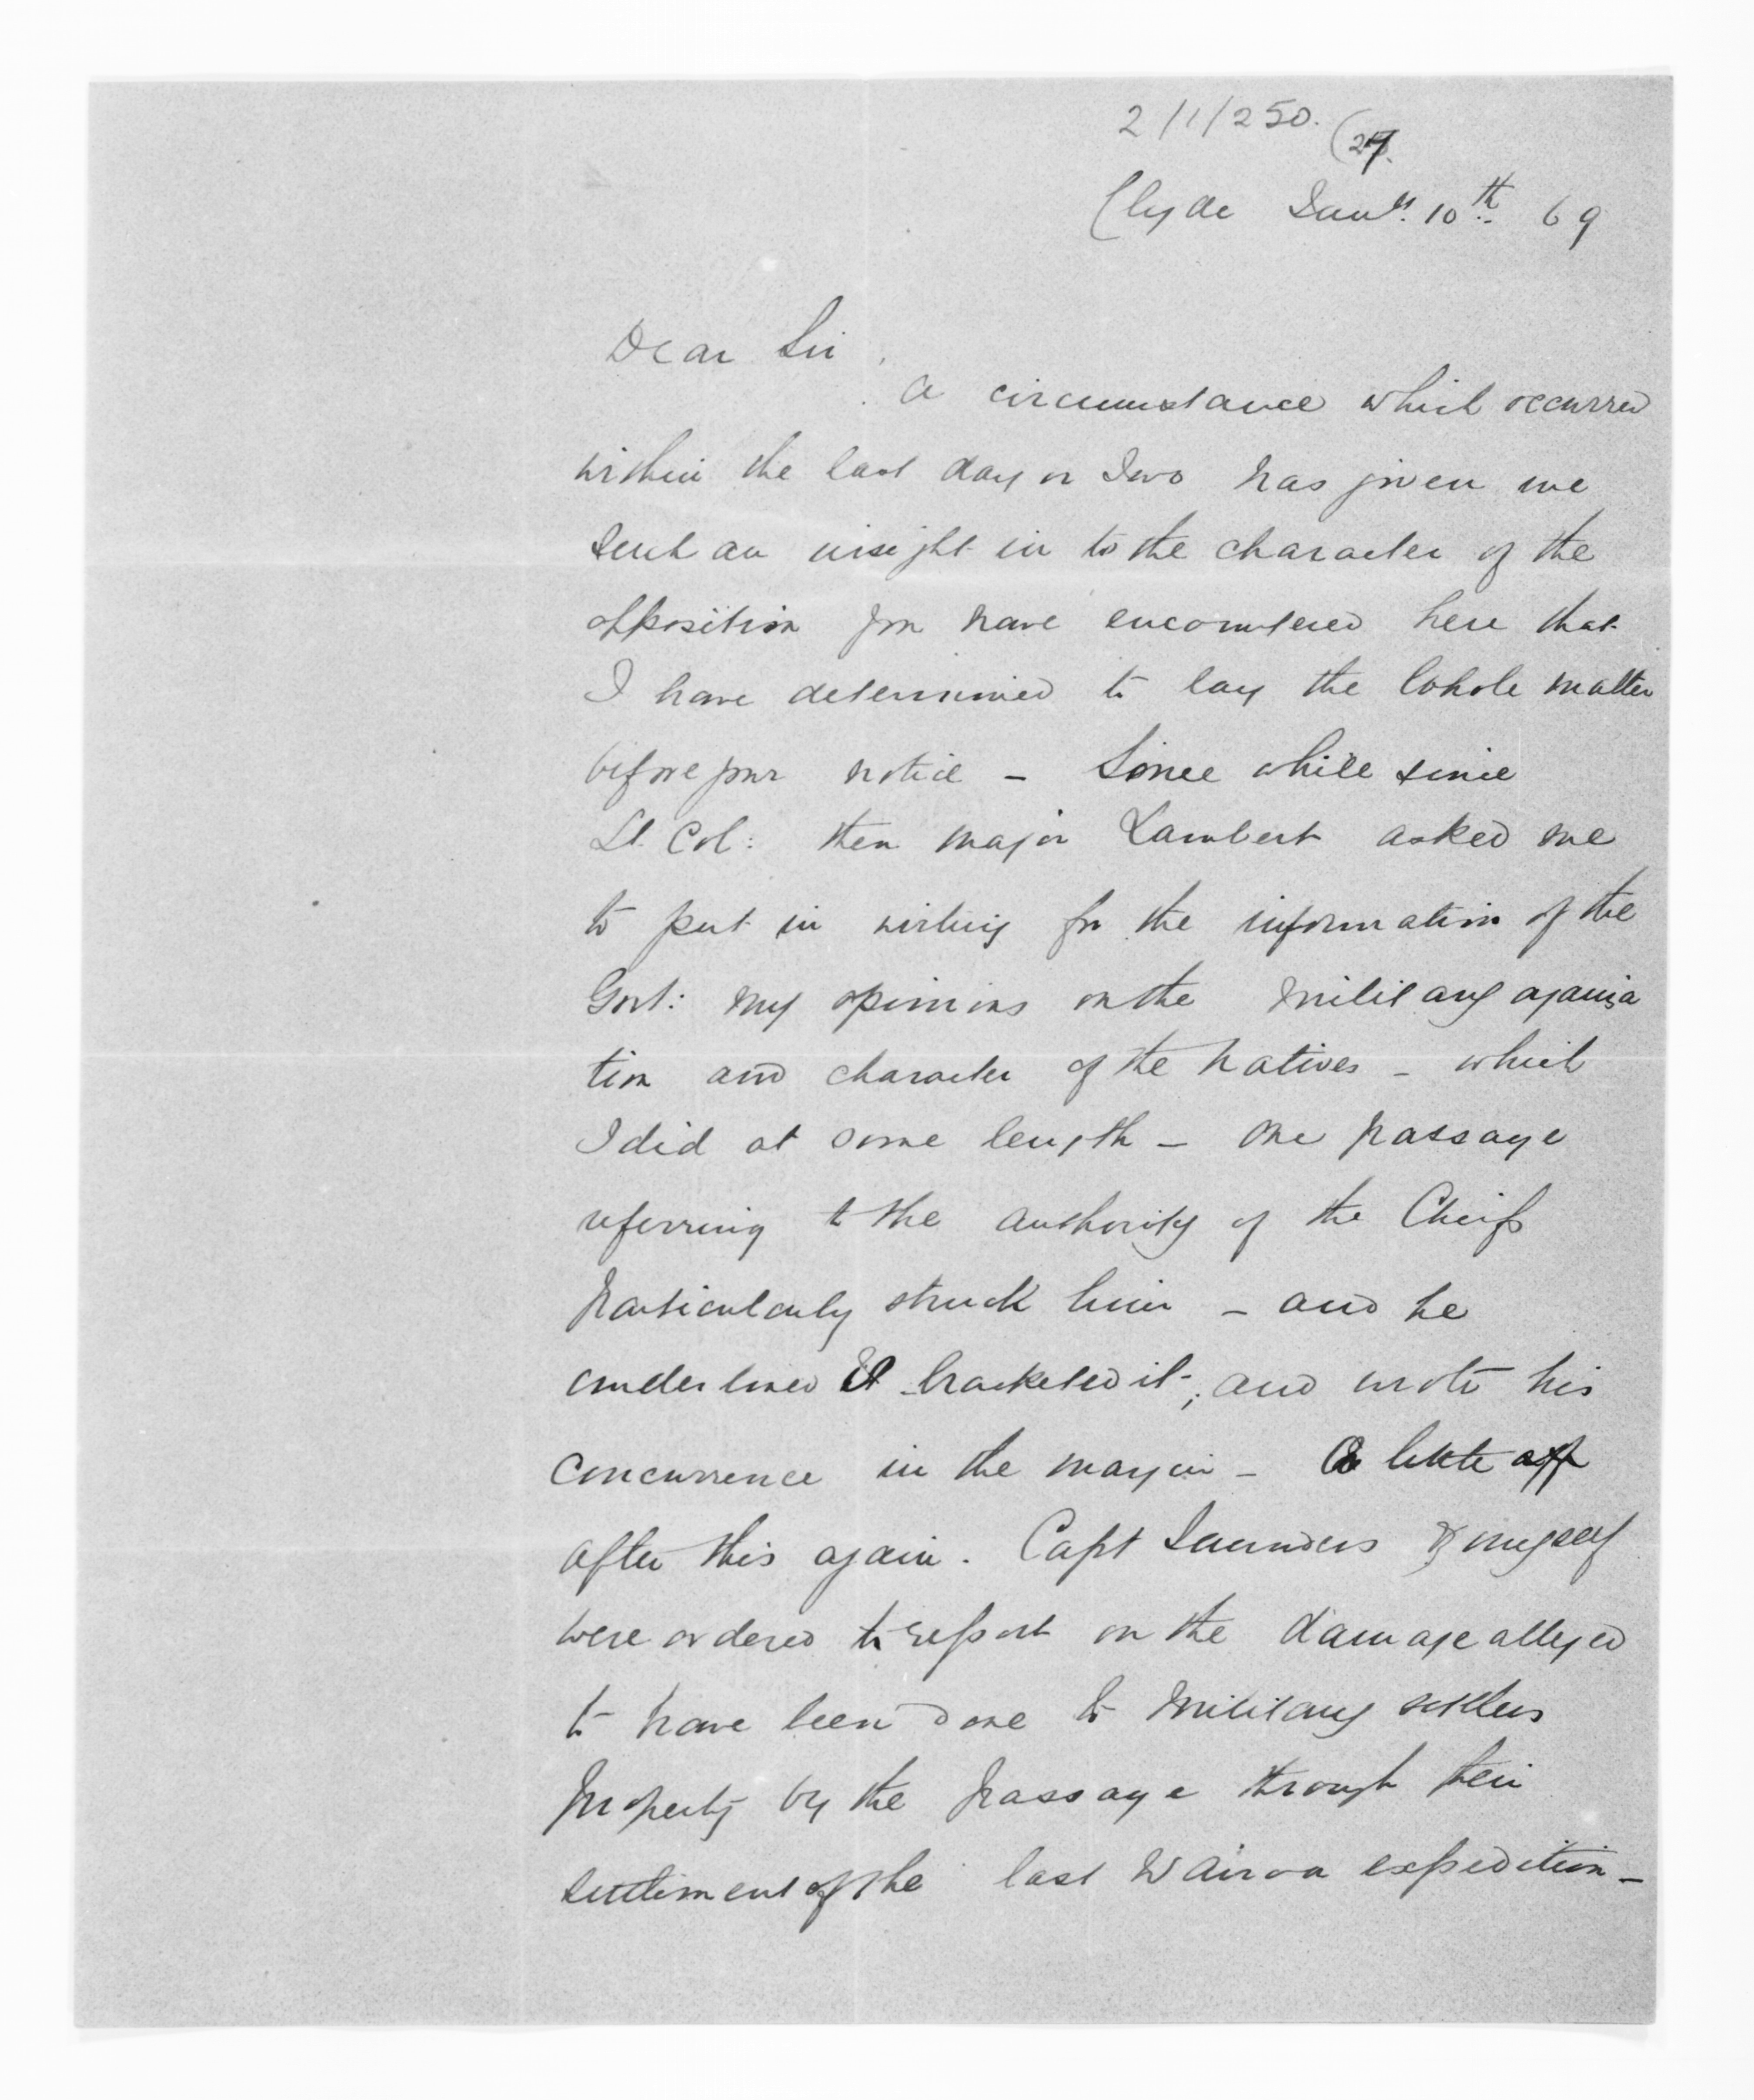 2/1/250.
(27.
Clyde Jany. 10th 69
Dear Sir,
A circumstance which occurred
within the last day or two has given me
such an insight in to the character of the
opposition you have encountered here that
I have determined to lay the whole matter
before your notice – Some while since
Lt. Col: then Major Lambert asked me
to put in writing for the information of the
Govt: my opinions on the Military organiza
tion and character of the Natives – which
I did at some length – One passage
referring to the authority of the Cheifs
particularly struck him – and he
underlined & bracketed it, and wrote his
concurrence in the margin – A little
after this again. Capt Saunders & myself
were ordered to report on the damage alleged
to have been done to Military settlers
property by the passage through their
settlement of the last Wairoa expedition –